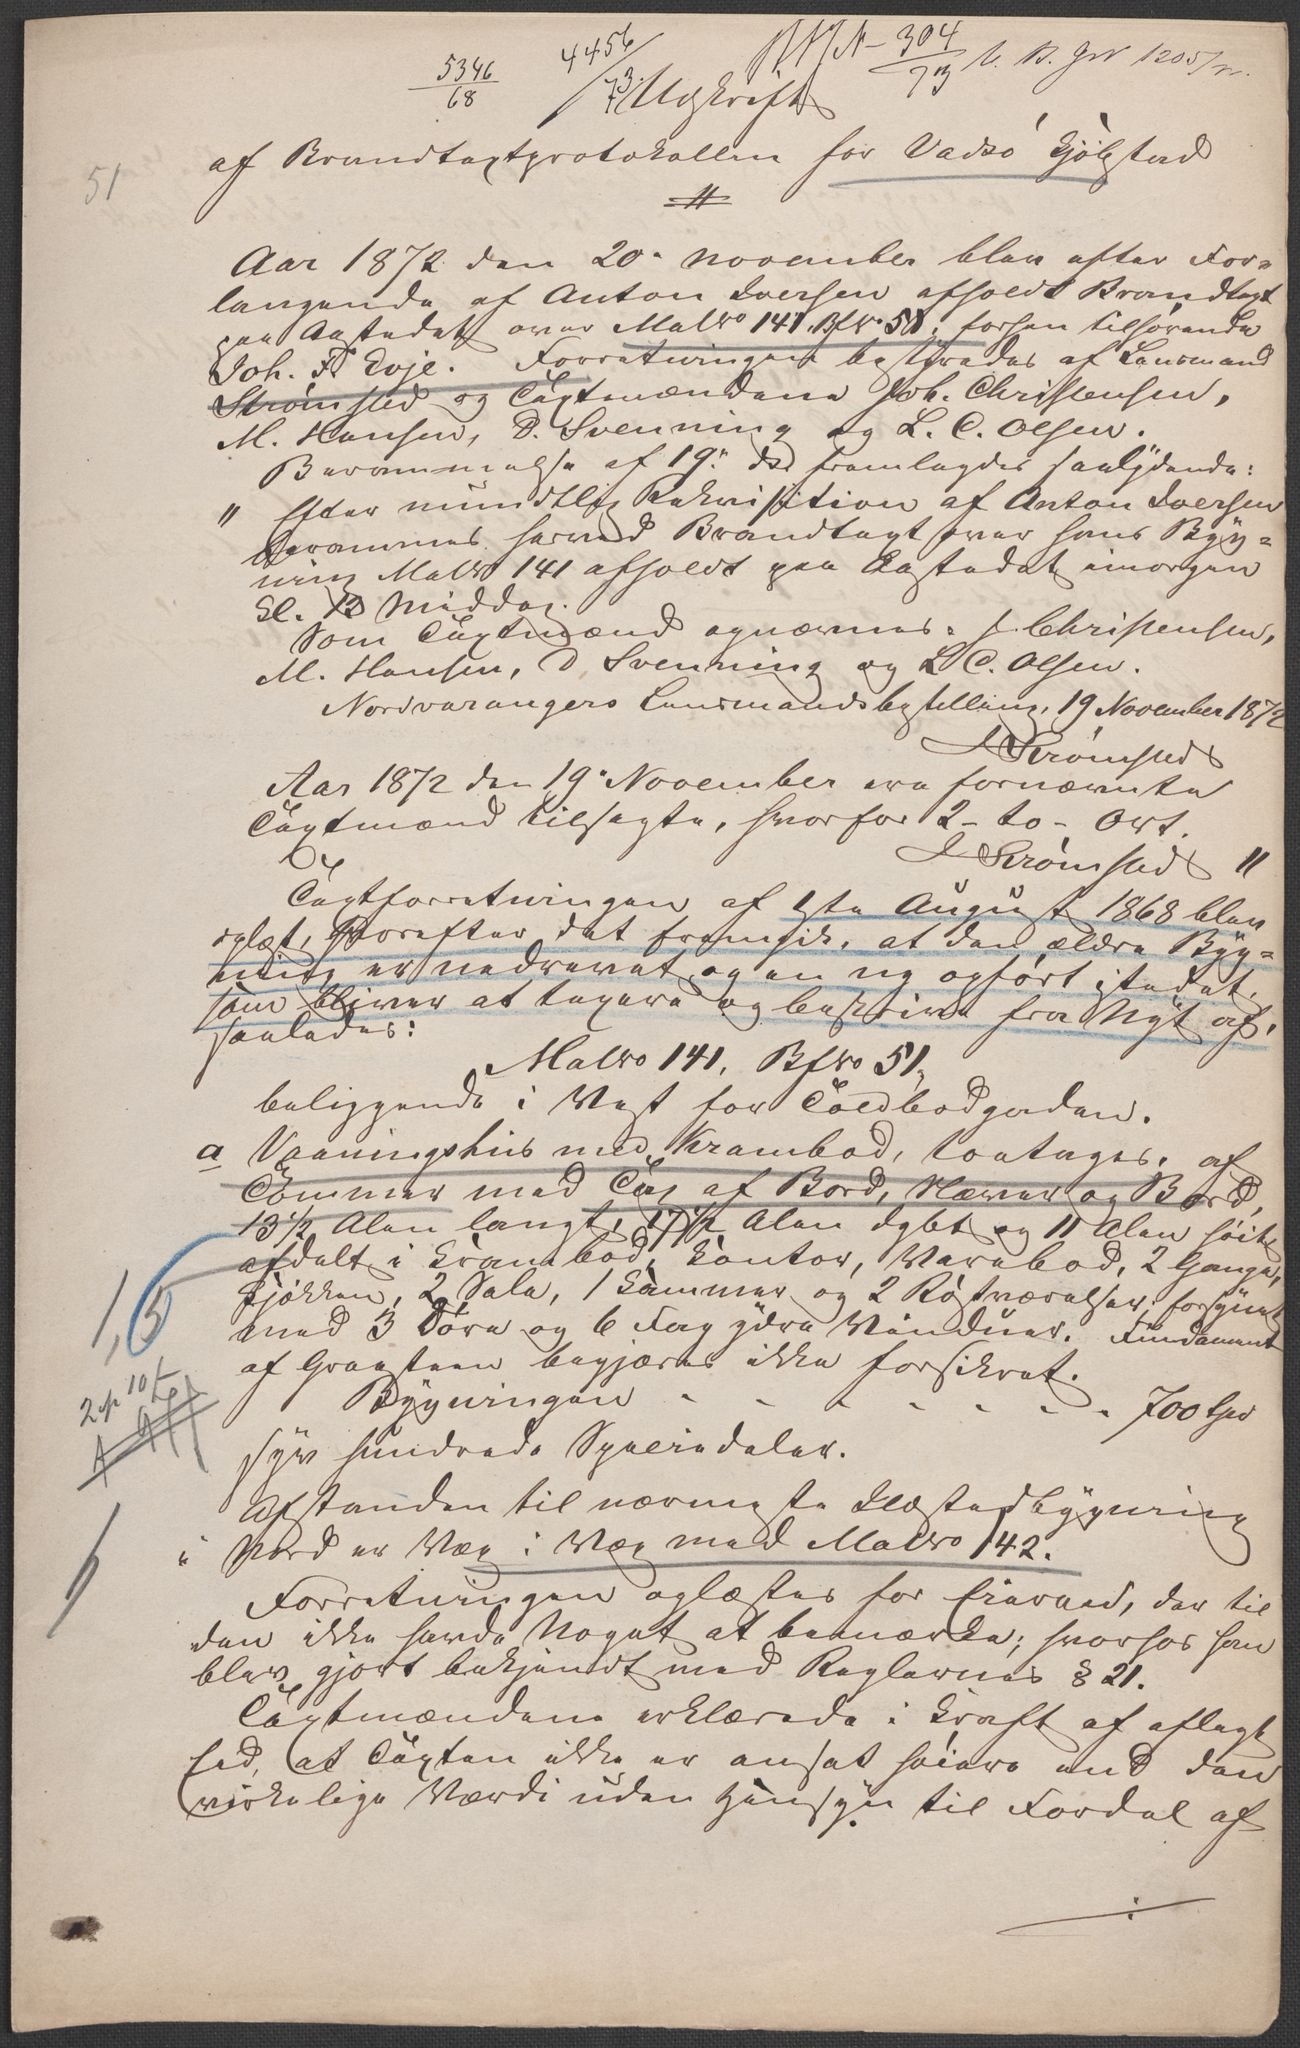 5346
68
4456
73.
N 304
73
Udskrift
51
af Brandtaxtprotokollen for Vadsö Kjöbstad
Aar 1872 den 20. November blev efter For=
langende af Anton Iversen afholdt Brandtaxt
paa Aastedet over Matr No 141. Bf No 51, forhen tilhørende
Joh. F. Evje. Forretningen bestyredes af Lensmand
Strømsted og Taxtmændene Joh. Christensen,
M. Hansen, D. Svenning og L. C. Olsen.
Berammelse af 19. ds fremlagdes saalydende:
" Efter mundtlig Rekvisition af Anton Iversen
berammes herved Brandtaxt over hans Byg=
ning Matr No 141 afholdt paa Aastedet imorgen
Kl. 12 Middag.
Som Taxtmænd opnævnes: J. Christensen,
M. Hansen, D. Svenning og L. C. Olsen.
Nordvarangers Lensmandsbestilling, 19 November 1872
J Strømsted
Aar 1872 den 19. November ere fornævnte
Taxtmænd tilsagte, hvorfor 2 - to - Ort.
J Strømsted "
Taxtforretningen af 1ste August 1868 blev
oplæst, hvorefter det fremgik, at den ældre Byg=
ning er nedrevet og en ny opført istedet,
som bliver at taxere og beskrive fra Nyt af,
saaledes:
Matr No 141. Bf No 51,
beliggende i Vest for Toldbodgaden.
a Vaaningshus med Krambod, toetages, af
Tømmer med Tag af Bord, Næver og Bord,
13 1/2 Alen langt, 17 1/2 Alen dybt og 11 Alen høit
afdelt i Krambod, Kontor, Varebod, 2 Gange,
Kjøkken, 2 Sale, 1 Kammer og 2 Røstværelser, forsynet
med 3 Døre og 6 Fag ydre Vinduer. Fundament
af Graasteen begjæres ikke forsikret.
1, 5
Bygningen - - - - - - - 700 Spd
syv hundrede Speciedaler.
Afstanden til nærmeste Ildstedsbygning
i Nord er Væg i Væg med Matr No 142.
Forretningen oplæstes for Eieren, der til
den ikke havde Noget at bemærke; hvorhos han
blev gjort bekjendt med Reglernes § 21.
Taxtmændene erklærede i Kraft af aflagt
Eed, at Taxten ikke er ansat høiere end den
virkelige Værdi uden Hensyn til Fordel af